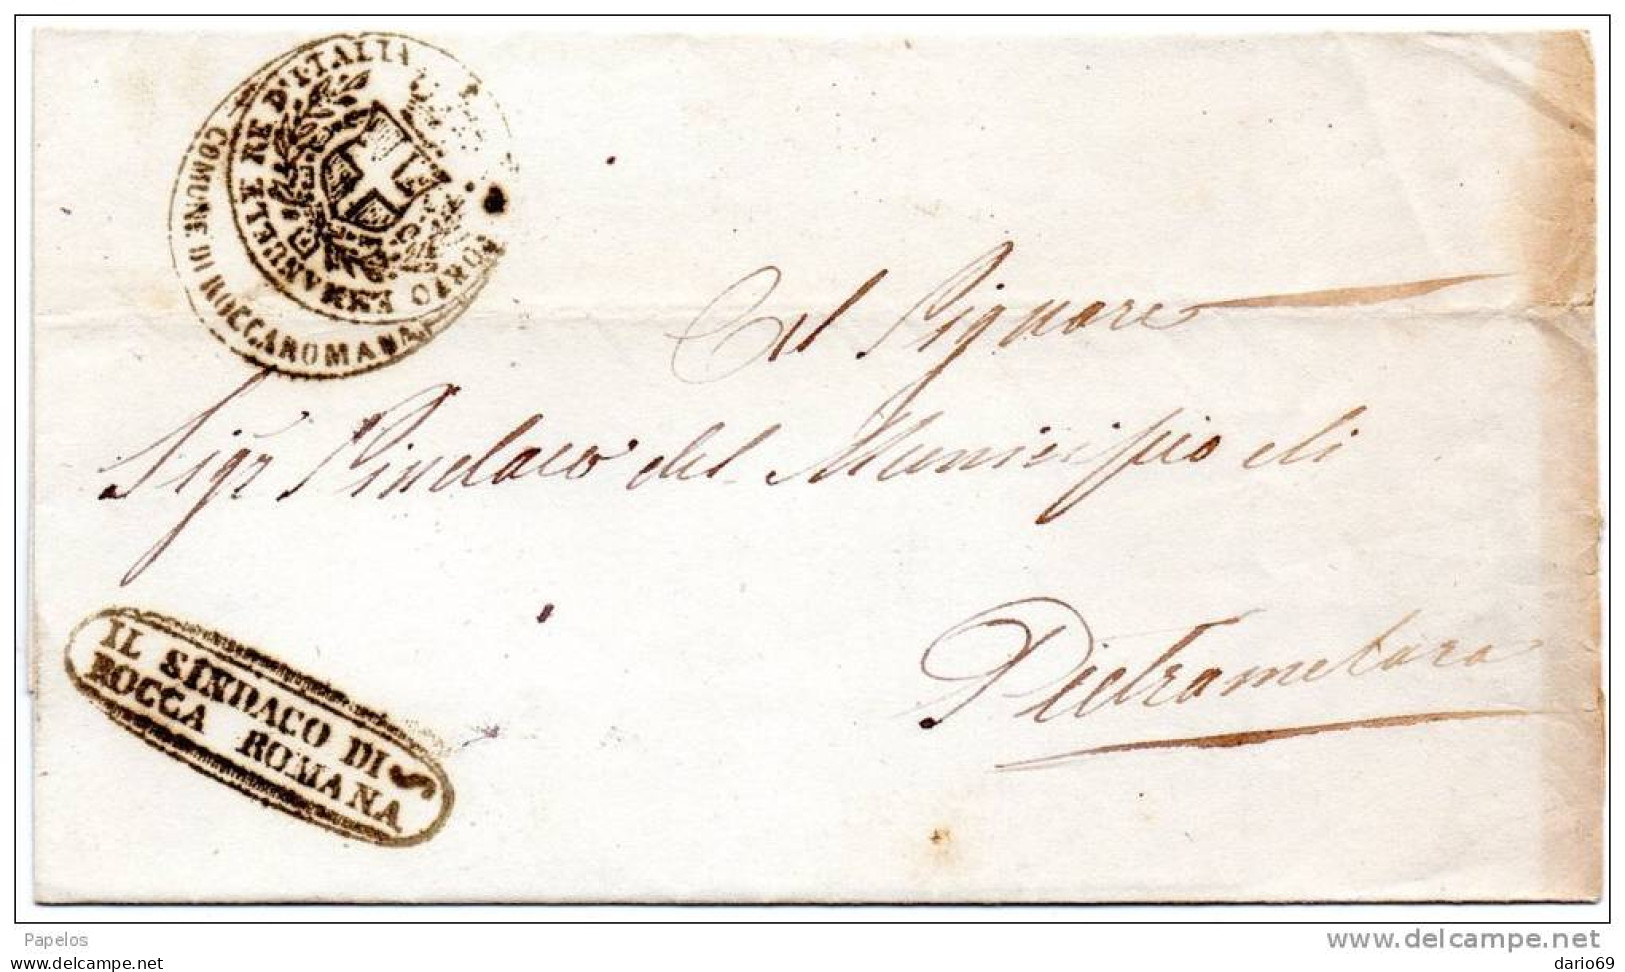 VITTORIO EMMANUELE RE D'ITALIA
COMUNE DI ROCCAROMANA
Al Signore
Sigr Sindaco del Municipio di
Pietramelara
IL SINDACO DI
ROCCA ROMANA
Papelos
www.delcampe.net
delcampe.net
dario69